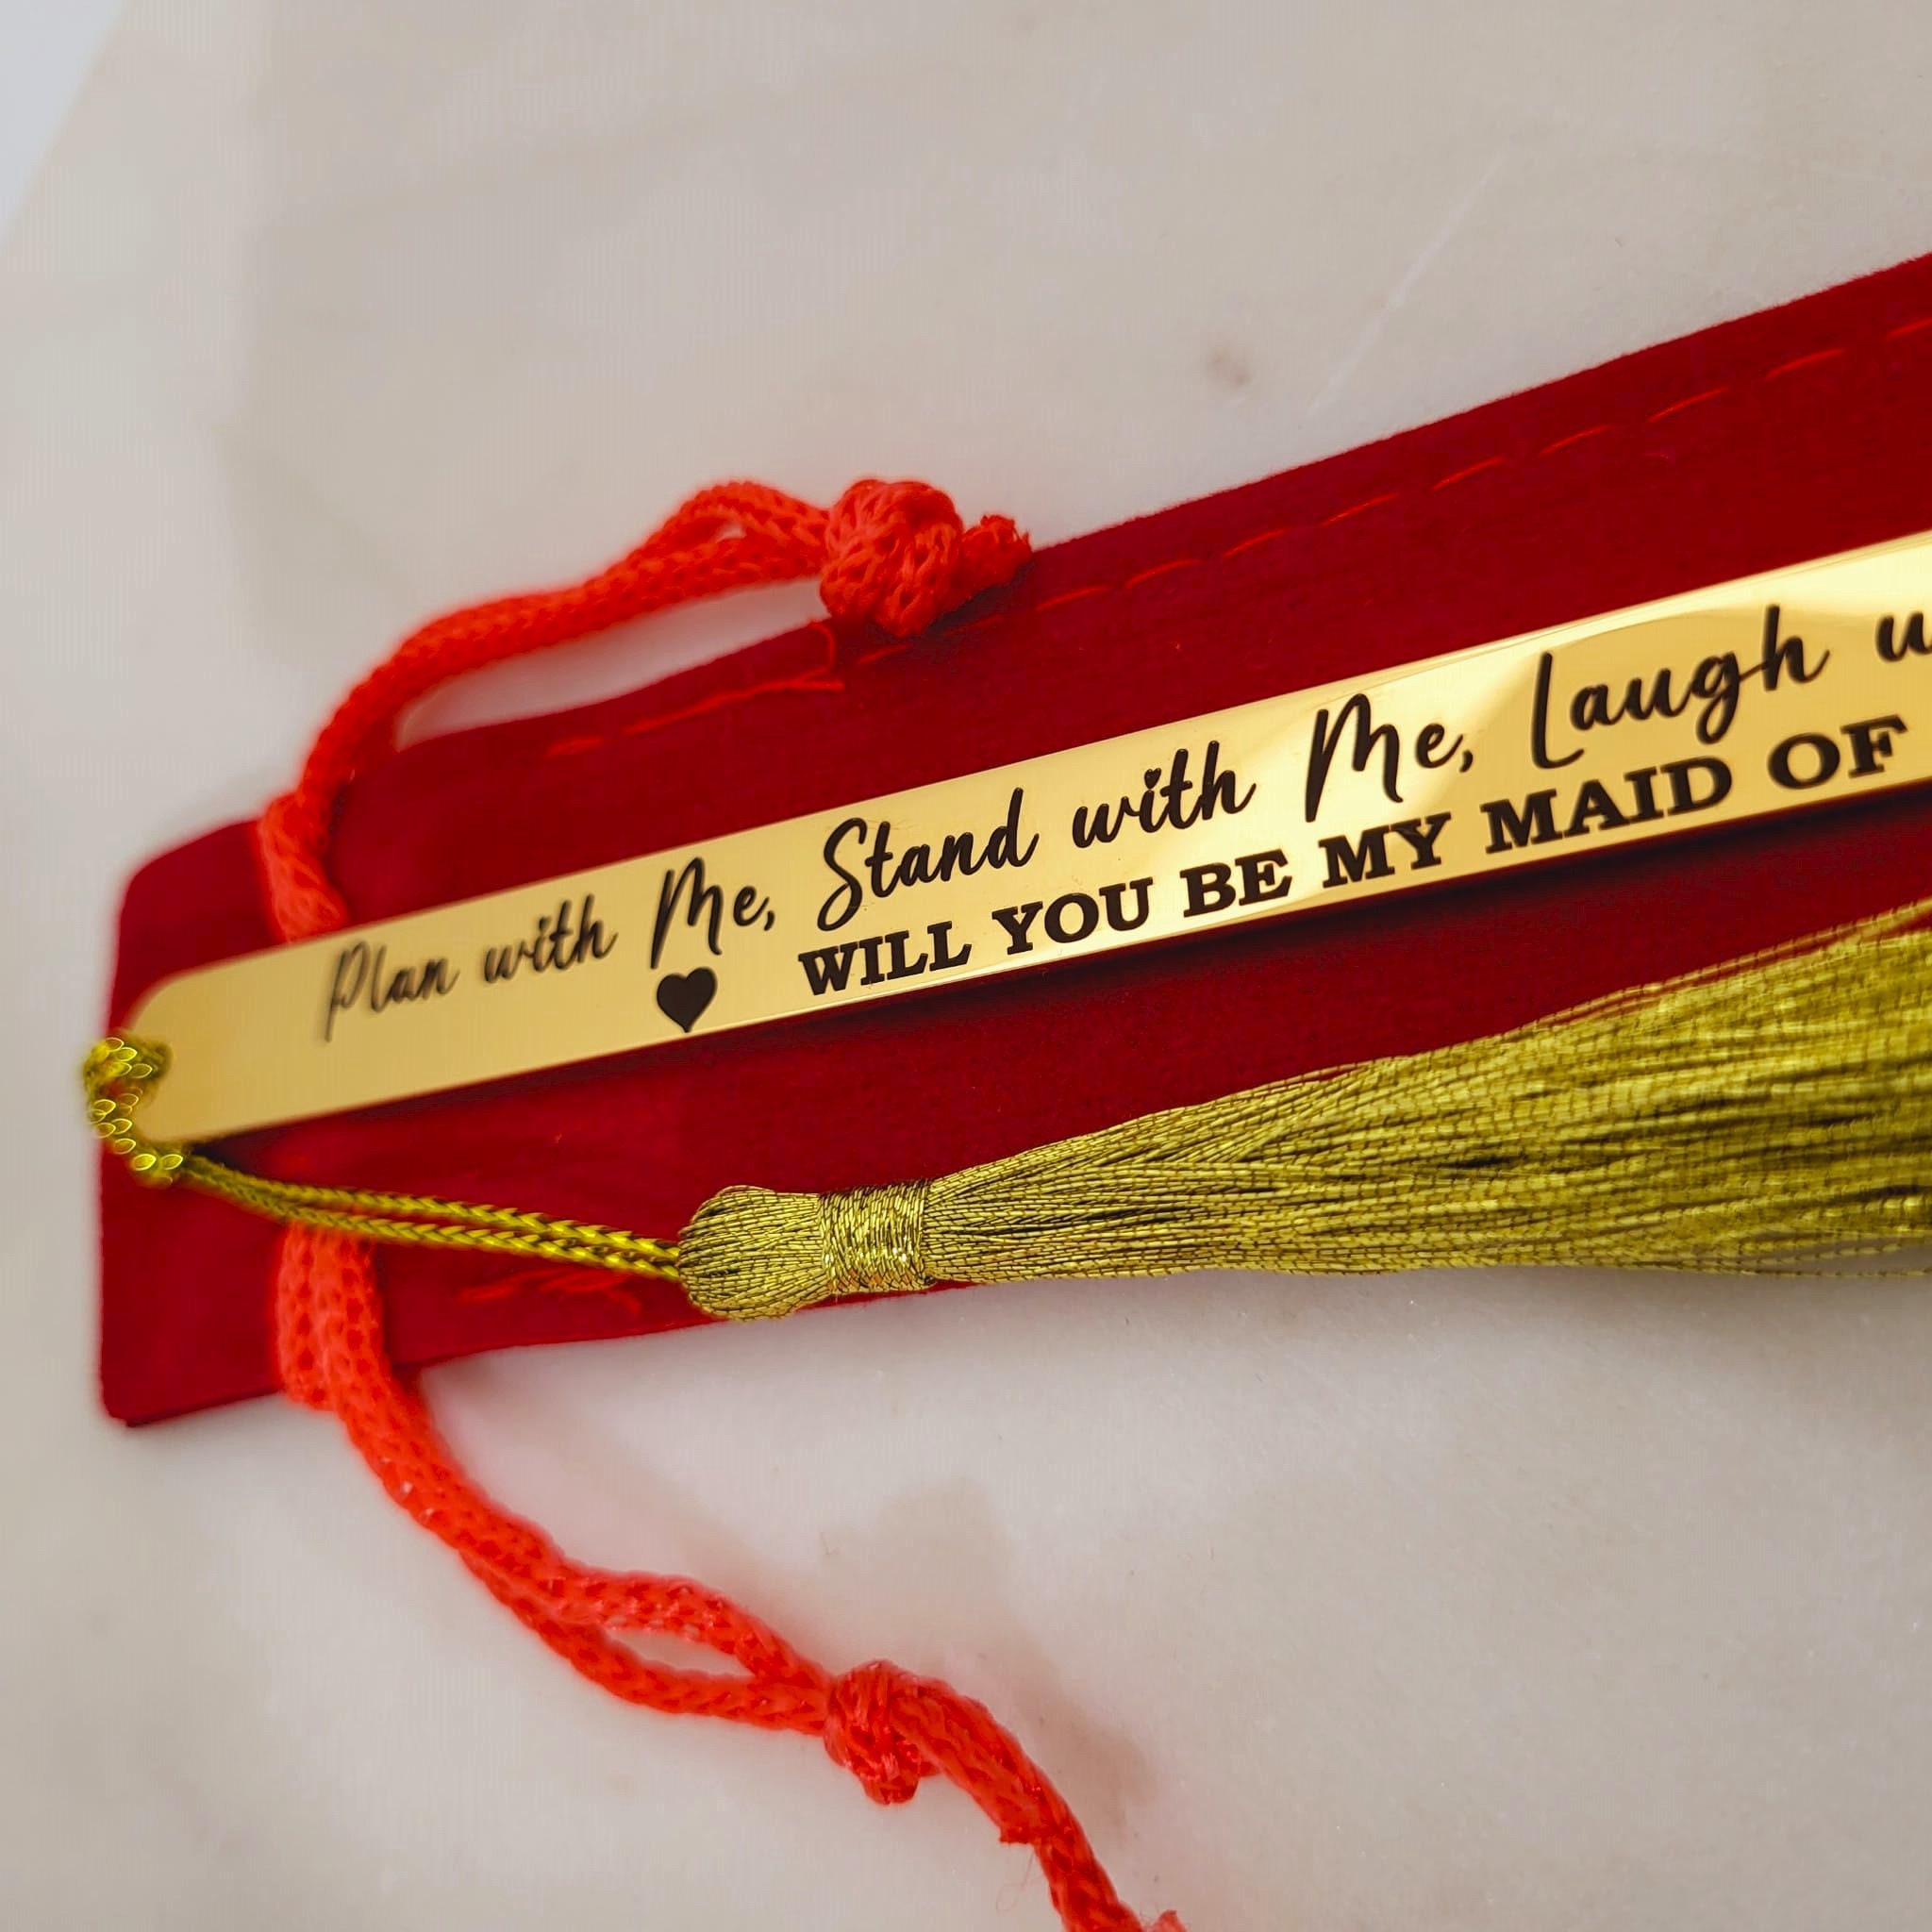 Plan with Me, Stand with Me, Laugh
♥ WILL YOU BE MY MAID OF